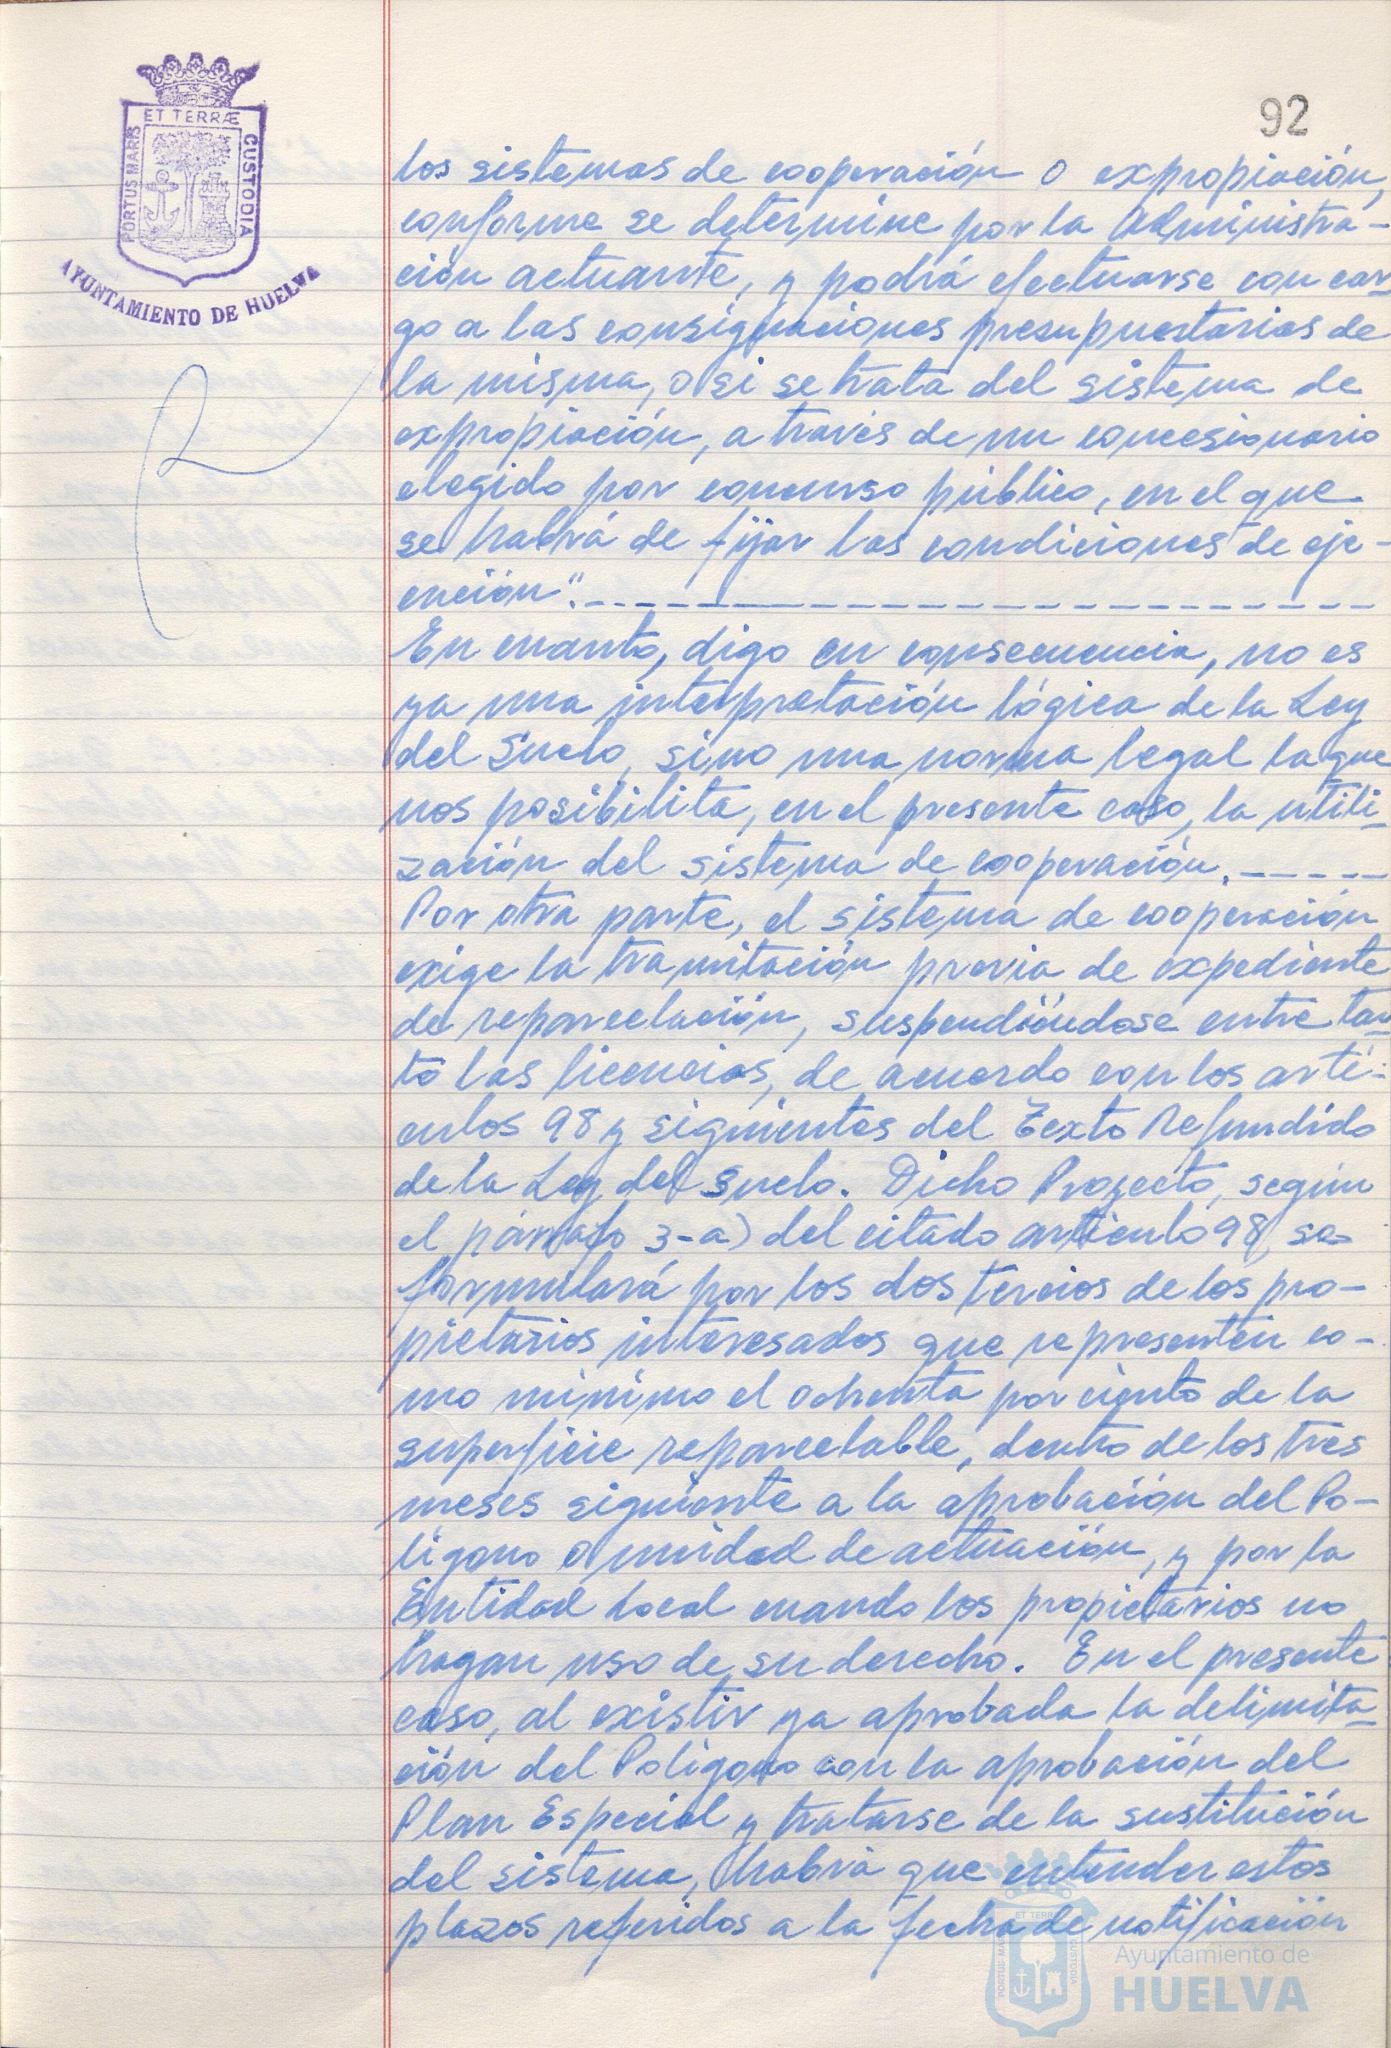 ET TERRÆ
PORTUS MARIS
CUSTODIA
AYUNTAMIENTO DE HUELVA
92
los sistemas de cooperación o expropiación,
conforme se determine por la Administra-
ción actuante, y podrá efectuarse con car-
go a las consignaciones presupuestarias de
la misma, o si se trata del sistema de
expropiación, a través de un concesionario
elegido por concurso público, en el que
se habrá de fijar las condiciones de eje-
cución".
En cuanto, digo en consecuencia, no es
ya una interpretación lógica de la Ley
del Suelo, sino una norma legal la que
nos posibilita, en el presente caso, la utili-
zación del sistema de cooperación.
Por otra parte, el sistema de cooperación
exige la tramitación previa de expediente
de reparcelación, suspendiéndose entre tan-
to las licencias, de acuerdo con los artí-
culos 98 y siguientes del Texto Refundido
de la Ley del Suelo. Dicho Proyecto, según
el párrafo 3-a) del citado artículo 98, se
formulará por los dos tercios de los pro-
pietarios interesados que representen co-
mo mínimo el ochenta por ciento de la
superficie reparcelable, dentro de los tres
meses siguiente a la aprobación del Po-
lígono o unidad de actuación, y por la
Entidad Local cuando los propietarios no
hagan uso de su derecho. En el presente
caso, al existir ya aprobada la delimita-
ción del Polígono con la aprobación del
Plan Especial y tratarse de la sustitución
del sistema, habrá que entender estos
plazos referidos a la fecha de notificación
ET TERRÆ
PORTUS MARIS
CUSTODIA
Ayuntamiento de
HUELVA